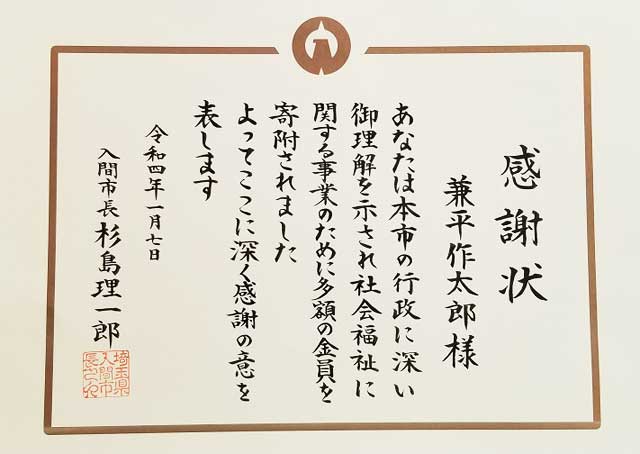 感謝状
兼平作太郎様
あなたは本市の行政に深い
御理解を示され社会福祉に
関する事業のために多額の金員を
寄附されました
よってここに深く感謝の意を
表します
令和四年一月七日
入間市長 杉島理一郎
埼玉県
入間市
長之印